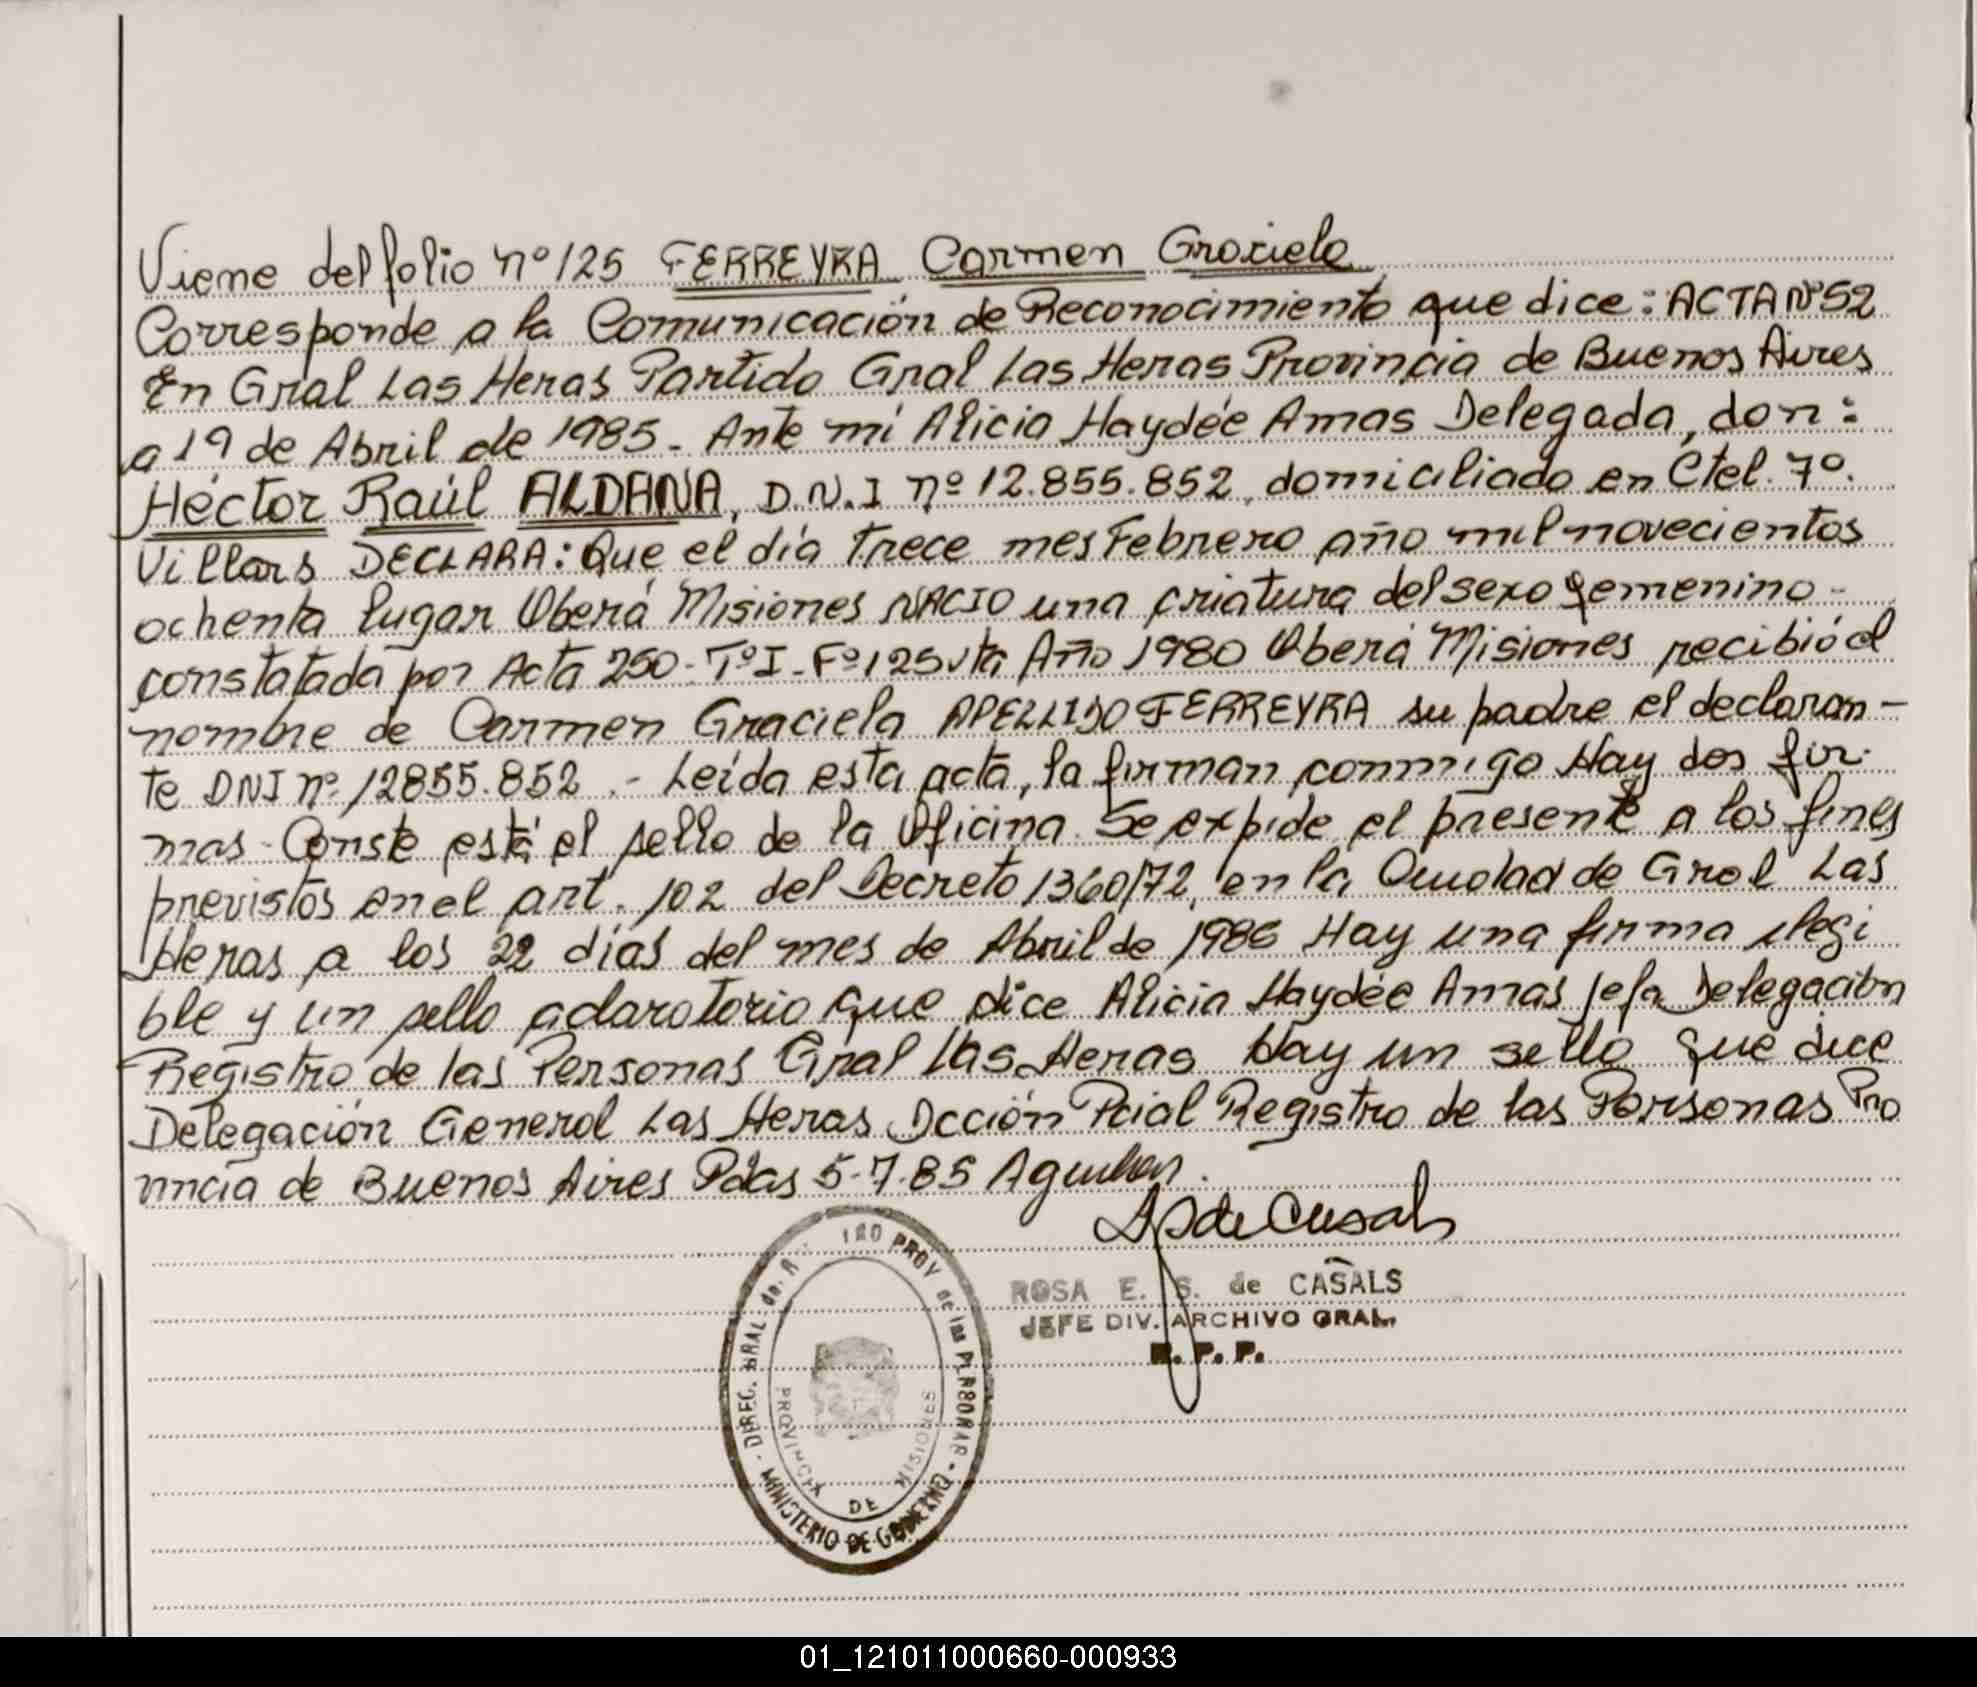 Viene del folio nº 125 FERREYRA Carmen Graciela
Corresponde a la Comunicación de Reconocimiento que dice: ACTA Nº 52
En Gral Las Heras Partido Gral Las Heras Provincia de Buenos Aires
a 19 de Abril de 1985. Ante mí Alicia Haydée Amas Delegada, don:
Héctor Raúl ALDANA, D.N.I nº 12.855.852, domiciliado en Ctel. 7º.
Villars DECLARA: Que el día trece mes Febrero año mil novecientos
ochenta lugar Oberá Misiones NACIO una criatura del sexo femenino-
constatada por Acta 250- Tº I- Fº 125 vta Año 1980 Oberá Misiones recibió el
nombre de Carmen Graciela APELLIDO FERREYRA su padre el declaran-
te DNI nº 12855.852.- Leída esta acta, la firman conmigo Hay dos fir-
mas- Conste está el sello de la Oficina Se expide el presente a los fines
previstos en el art. 102 del Decreto 1360/72, en la Ciudad de Gral Las
Heras a los 22 días del mes de Abril de 1986 Hay una firma ilegi
ble y un sello aclaratorio que dice Alicia Haydée Amas Jefa Delegación
Registro de las Personas Gral Las Heras Hay un sello que dice
Delegación General Las Heras Dcción Pcial Registro de las Personas Pro
vincia de Buenos Aires Pdas 5-7-85
ROSA E. S. de CASALS
JEFE DIV. ARCHIVO GRAL.
R. P. P.
DIREC. GRAL de PROV de las PERSONAS
MINISTERIO DE GOBIERNO
PROVINCIA DE MISIONES
01_121011000660-000933